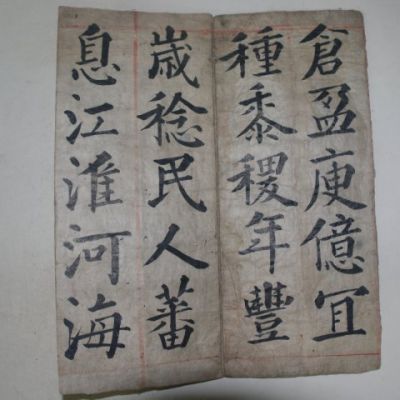 倉盈庾億冝
種黍稷年豐
歳稔民人蕃
息江淮河海